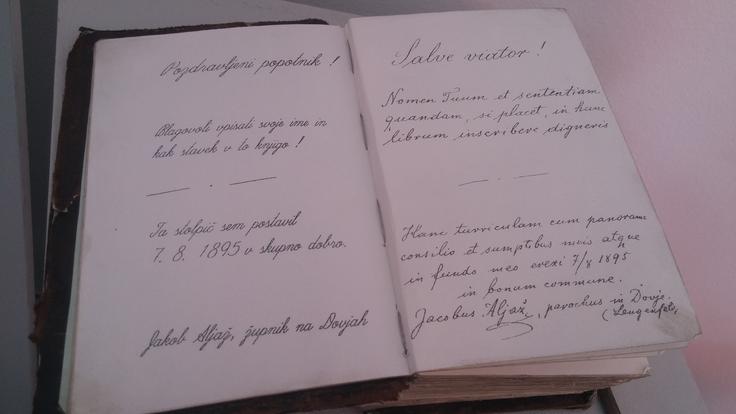 Pozdravljeni popotnik !
Blagovoli vpisati svoje ime in
kak stavek v to knjigo !
Ta stolpič sem postavil
7. 8. 1895 v skupno dobro.
Jakob Aljaž, župnik na Dovjah
Salve viator !
Nomen Tuum et sententiam
quandam, si placet, in hunc
librum inscribere digneris
Hanc turriculam cum panorama
consilio et sumptibus meis atque
in fundo meo erexi 7/8 1895
in bonum commune.
Jacobus Aljaž, parochus in Dovje.
(Lengenfeld)